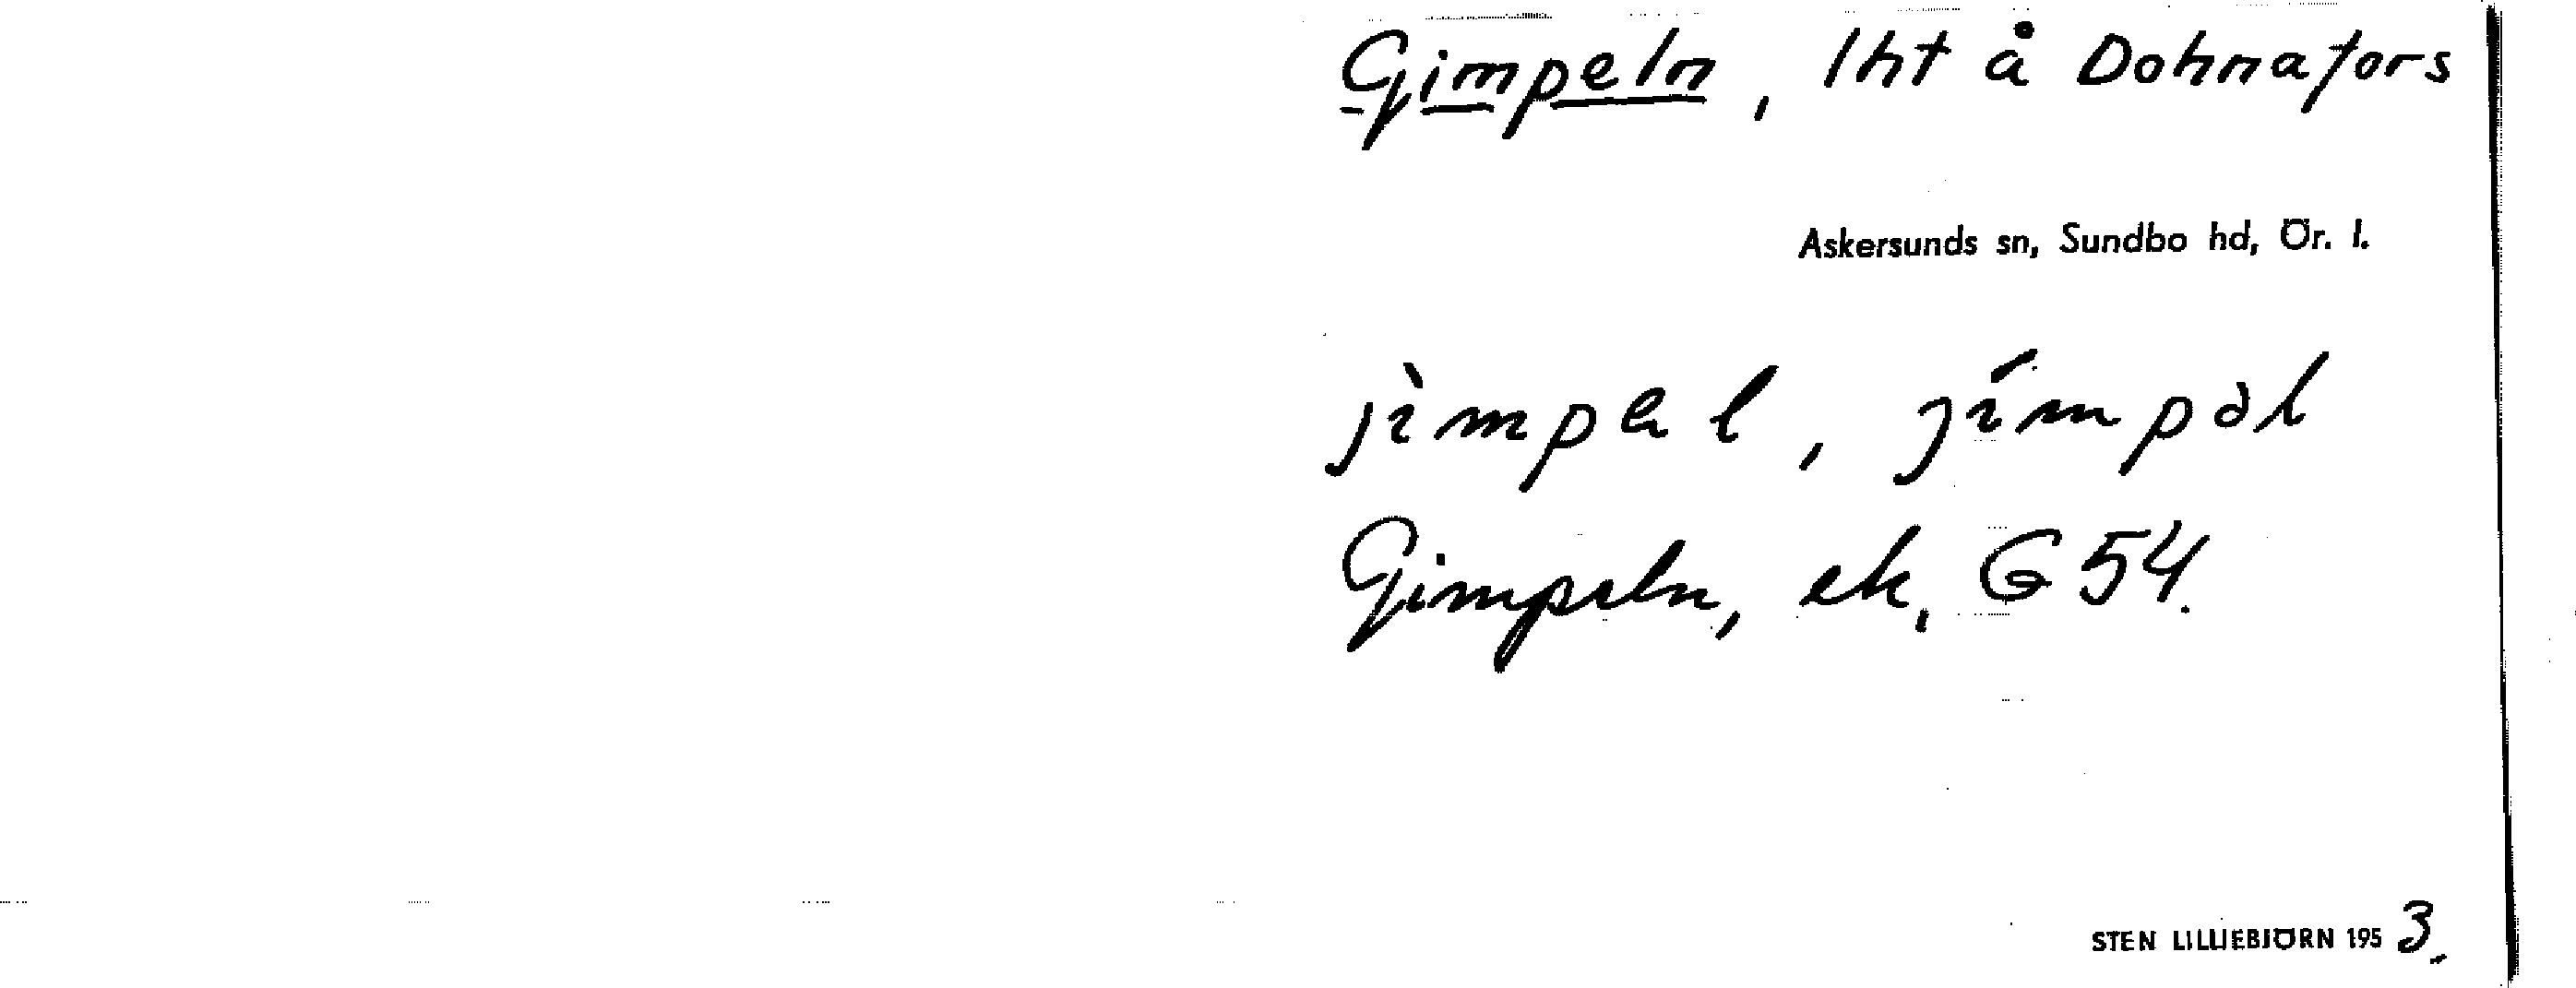 Gimpeln, lht å Dohnafors
Askersunds sn, Sundbo hd, Ör. l.
jìmpəl, jímpəl
Gimpeln, ek, G 54.
STEN LILLIEBJÖRN 1953.